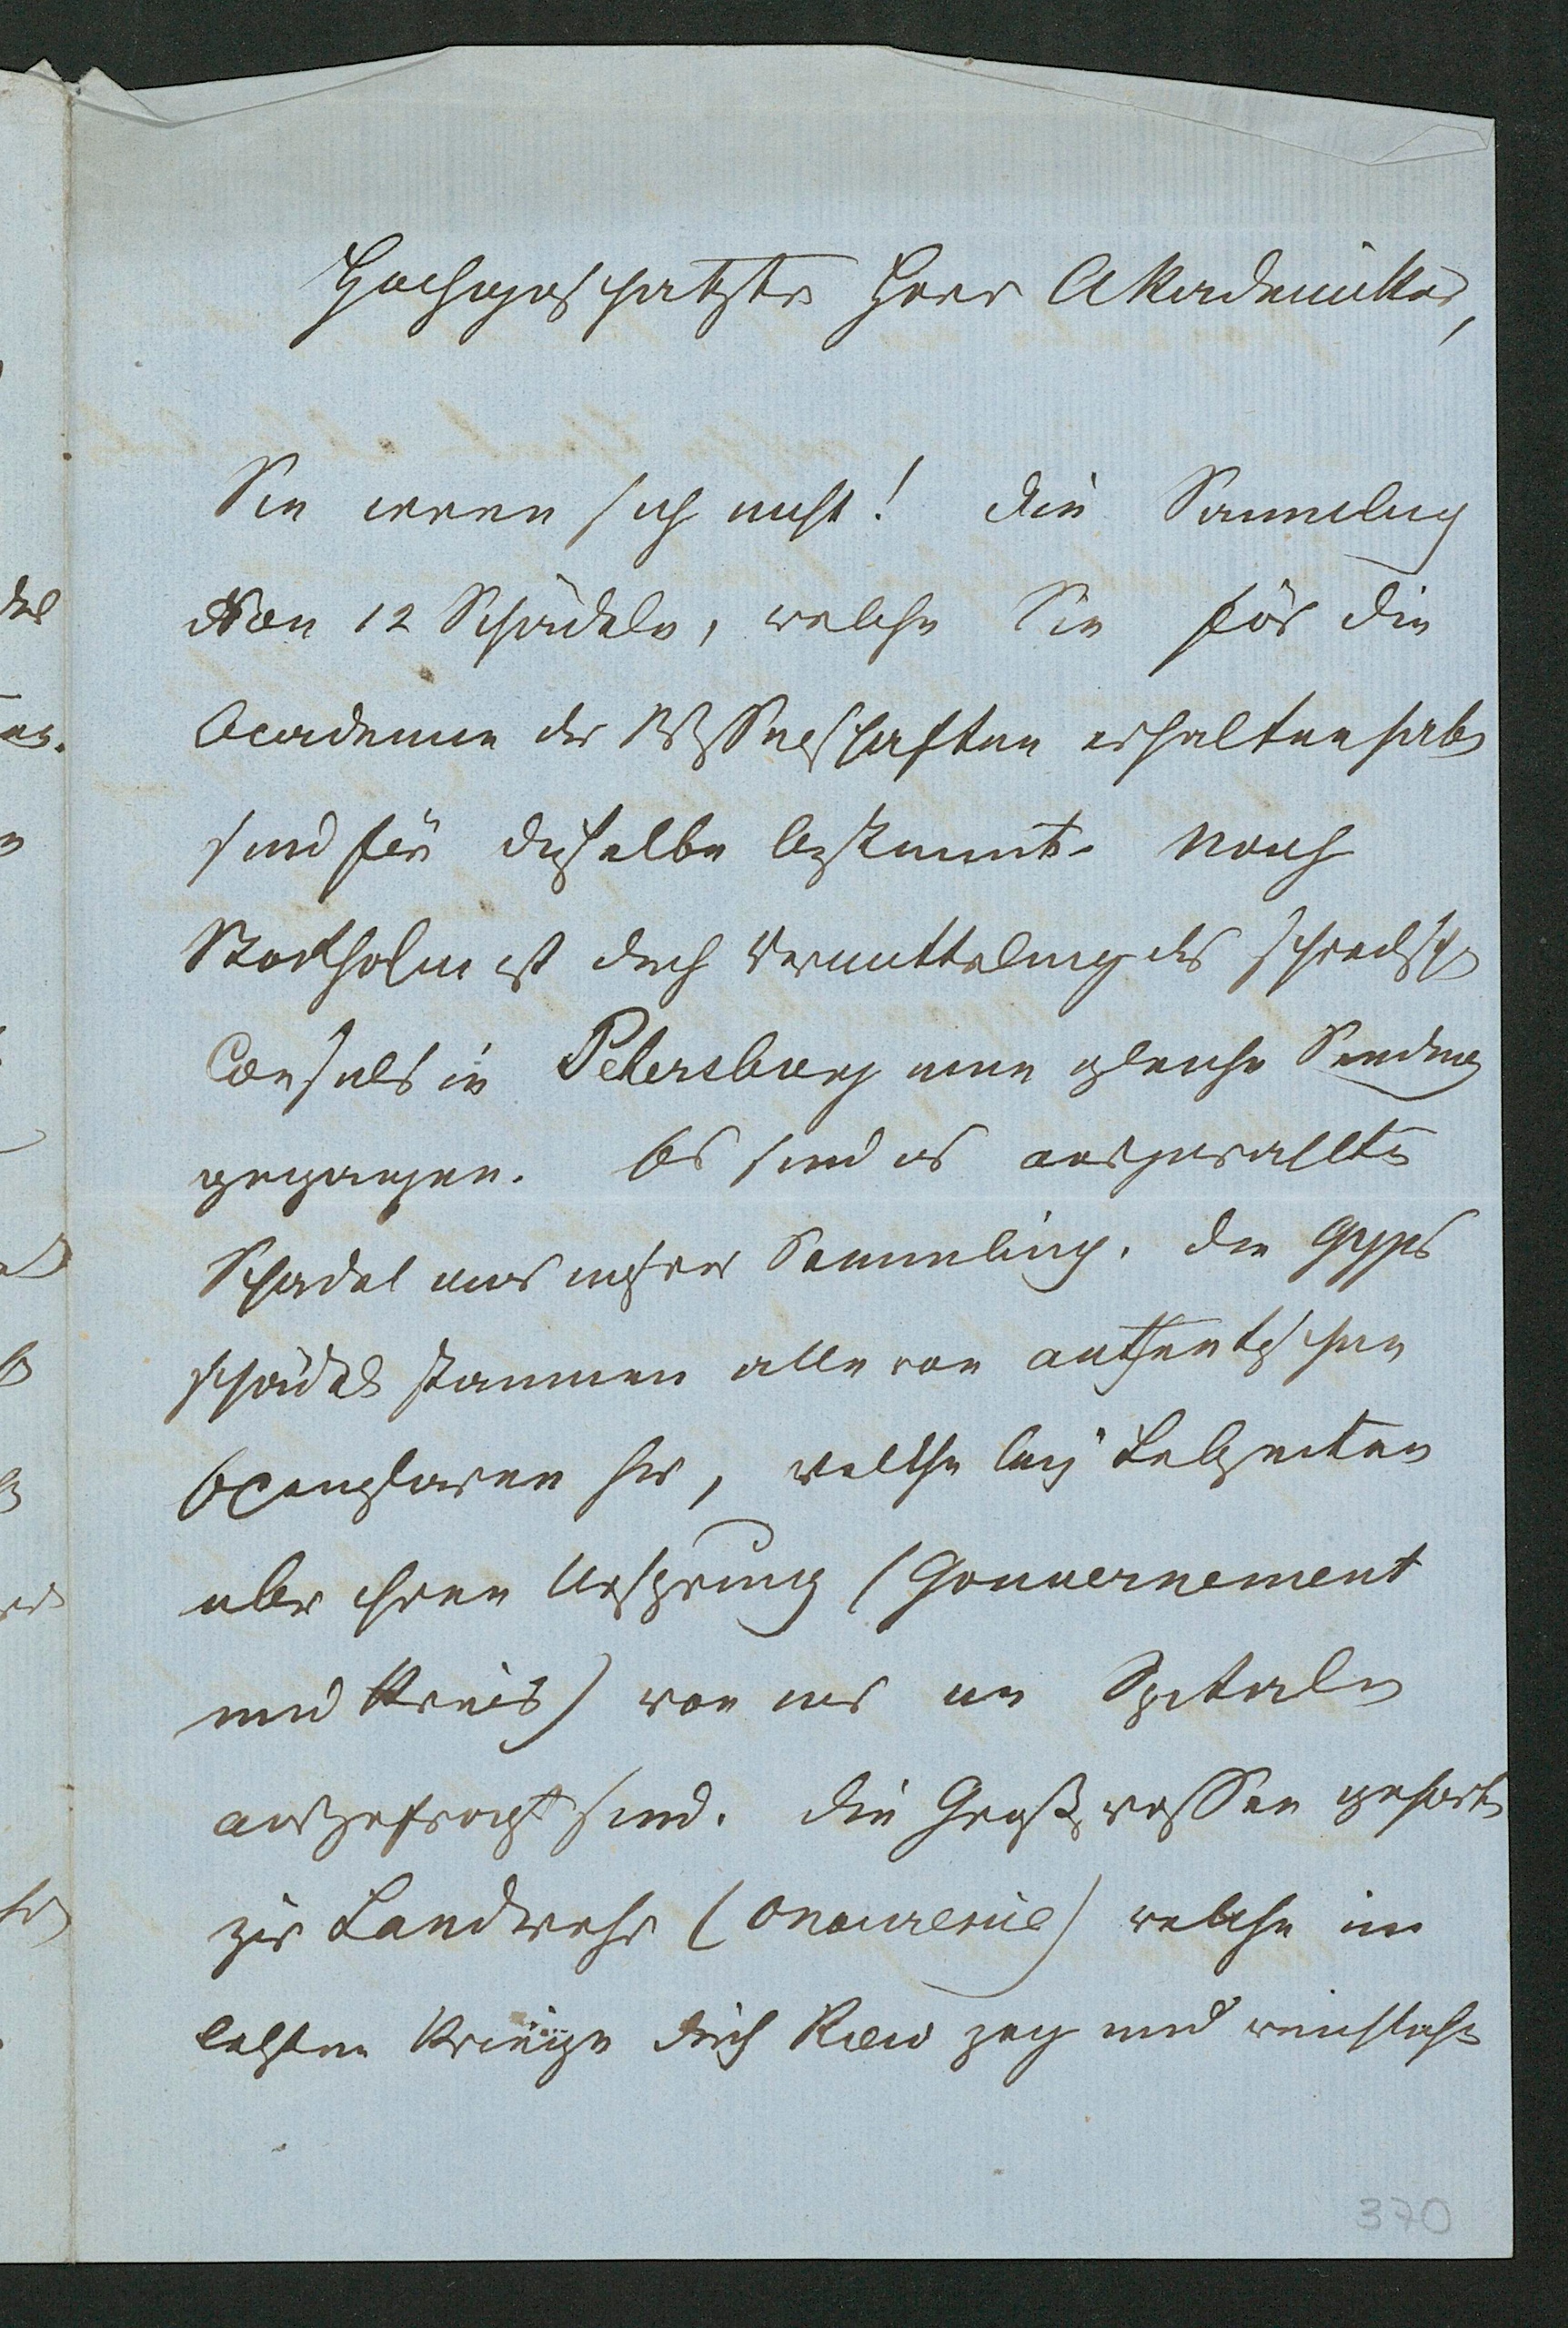 Hochgeschatzter Herr Akademiker,
Sie irren sich nicht! die Sammlung
von 12 Schädeln, welche Sie für die
Academie der Wissenschaften erhalten haben
sind für dieselbe bestimmt. Nach
Stockholm ist durch Vermittelung des schwedischen
Consuls in Petersburg eine gleiche Sendung
gegangen. Es sind es ausgewahlte
Schadel aus unserer Sammlung. die Gyps
schädel stammen alle von authentischen
Exemplaren her, welche bey Lebzeiten
uber ihren Ursprung (Gouvernement
und Kreis) von uns im Spitale
ausgefragt sind. Die Großrussen gehorten
zur Landwehr (ополчение) welche im
letzten Kriege durch Kiew zog und
370